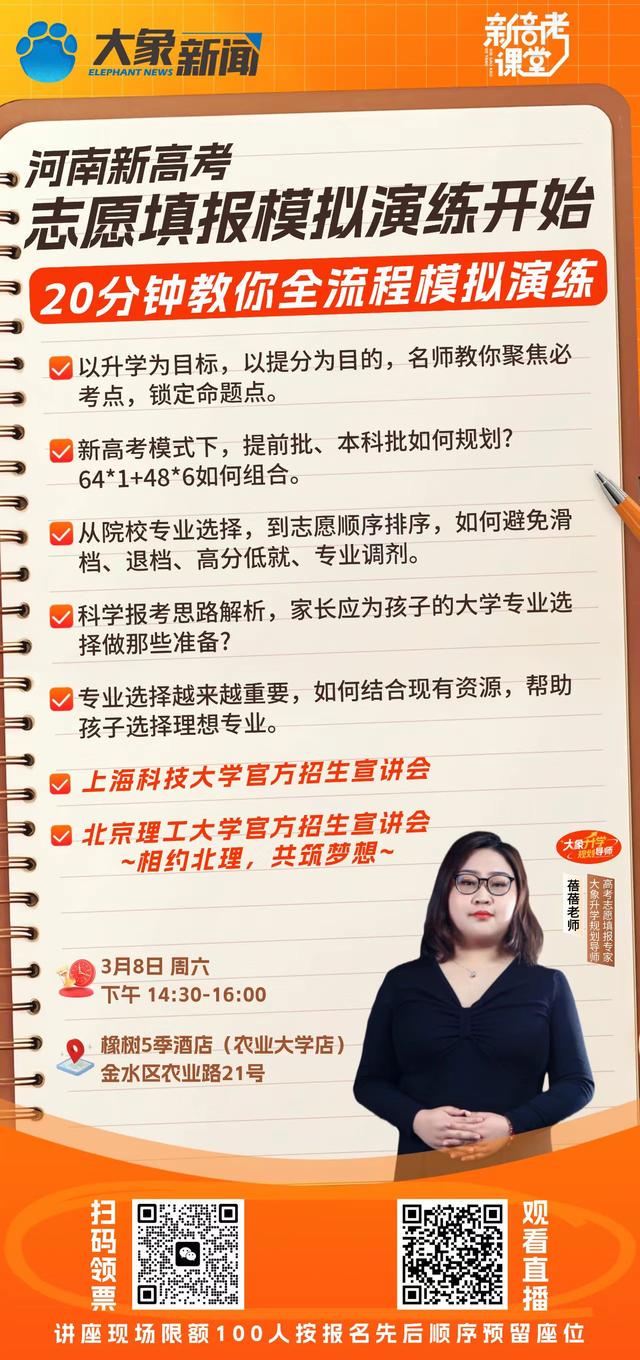 大象新闻
ELEPHANT NEWS
新高考
课堂
河南新高考
志愿填报模拟演练开始
20分钟教你全流程模拟演练
以升学为目标，以提分为目的，名师教你聚焦必
考点，锁定命题点。
新高考模式下，提前批、本科批如何规划?
64*1+48*6如何组合。
从院校专业选择，到志愿顺序排序，如何避免滑
档、退档、高分低就、专业调剂。
科学报考思路解析，家长应为孩子的大学专业选
择做那些准备?
专业选择越来越重要，如何结合现有资源，帮助
孩子选择理想专业。
上海科技大学官方招生宣讲会
北京理工大学官方招生宣讲会
~相约北理，共筑梦想~
大象升学
规划导师
高考志愿填报专家
大象升学规划导师
蓓蓓老师
3月8日 周六
下午 14:30-16:00
橡树5季酒店（农业大学店）
金水区农业路21号
扫码领票
观看直播
讲座现场限额100人按报名先后顺序预留座位